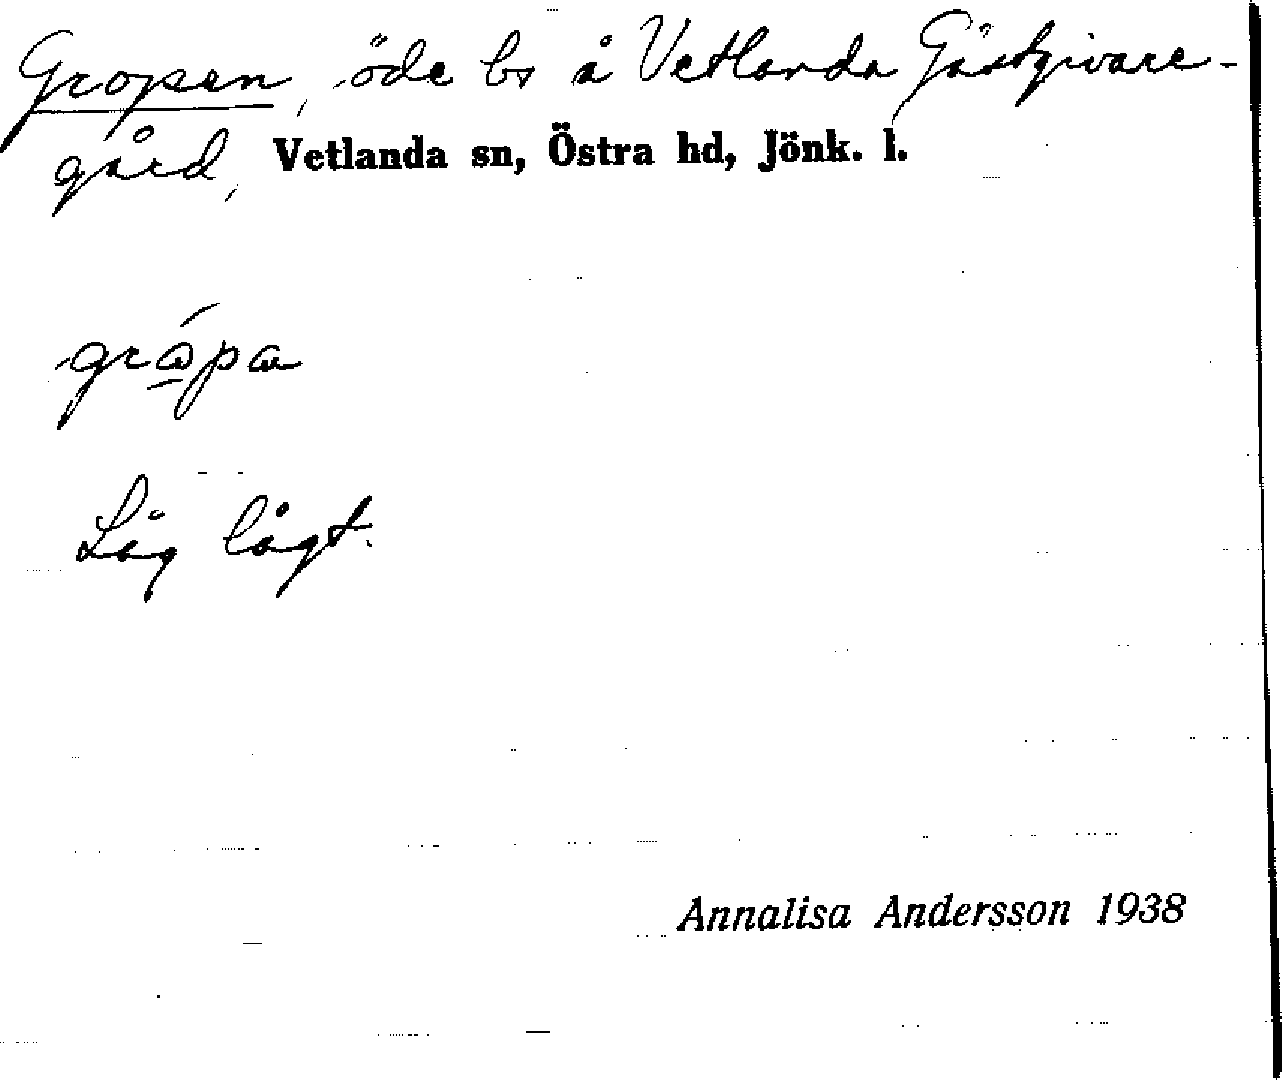 Gropen, öde bs å Vetlanda Gästgivare-
gård, Vetlanda sn, Östra hd, Jönk. l.
Låg lågt.
Annalisa Andersson 1938